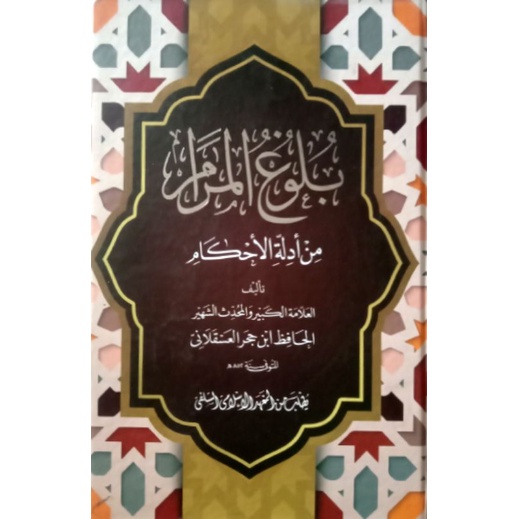 بُلُوغُ المَرَامِ
مِنْ أَدِلَّةِ الأَحْكَامِ
تأليف
العلامة الكبير والمحدث الشهير
الحافظ ابن حجر العسقلاني
المتوفى سنة ٨٥٢ هـ
يطلب من المعهد الإسلامي السلفي